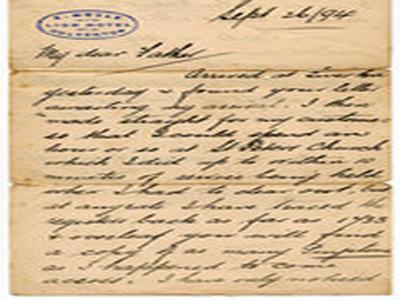 LION HOTEL
Sept 26/94
My dear Father
Arrived at
yesterday & found your letter
awaiting my arrival. I then
made straight for my customer
so that I could spend an
hour or so at St Peters Church
which I did up to within 10
minutes of service being held
when I had to clear out
at any rate I have traced the
register back as far as 1733
& you will find
a copy of as many
as I happened to come
across. I have only noticed